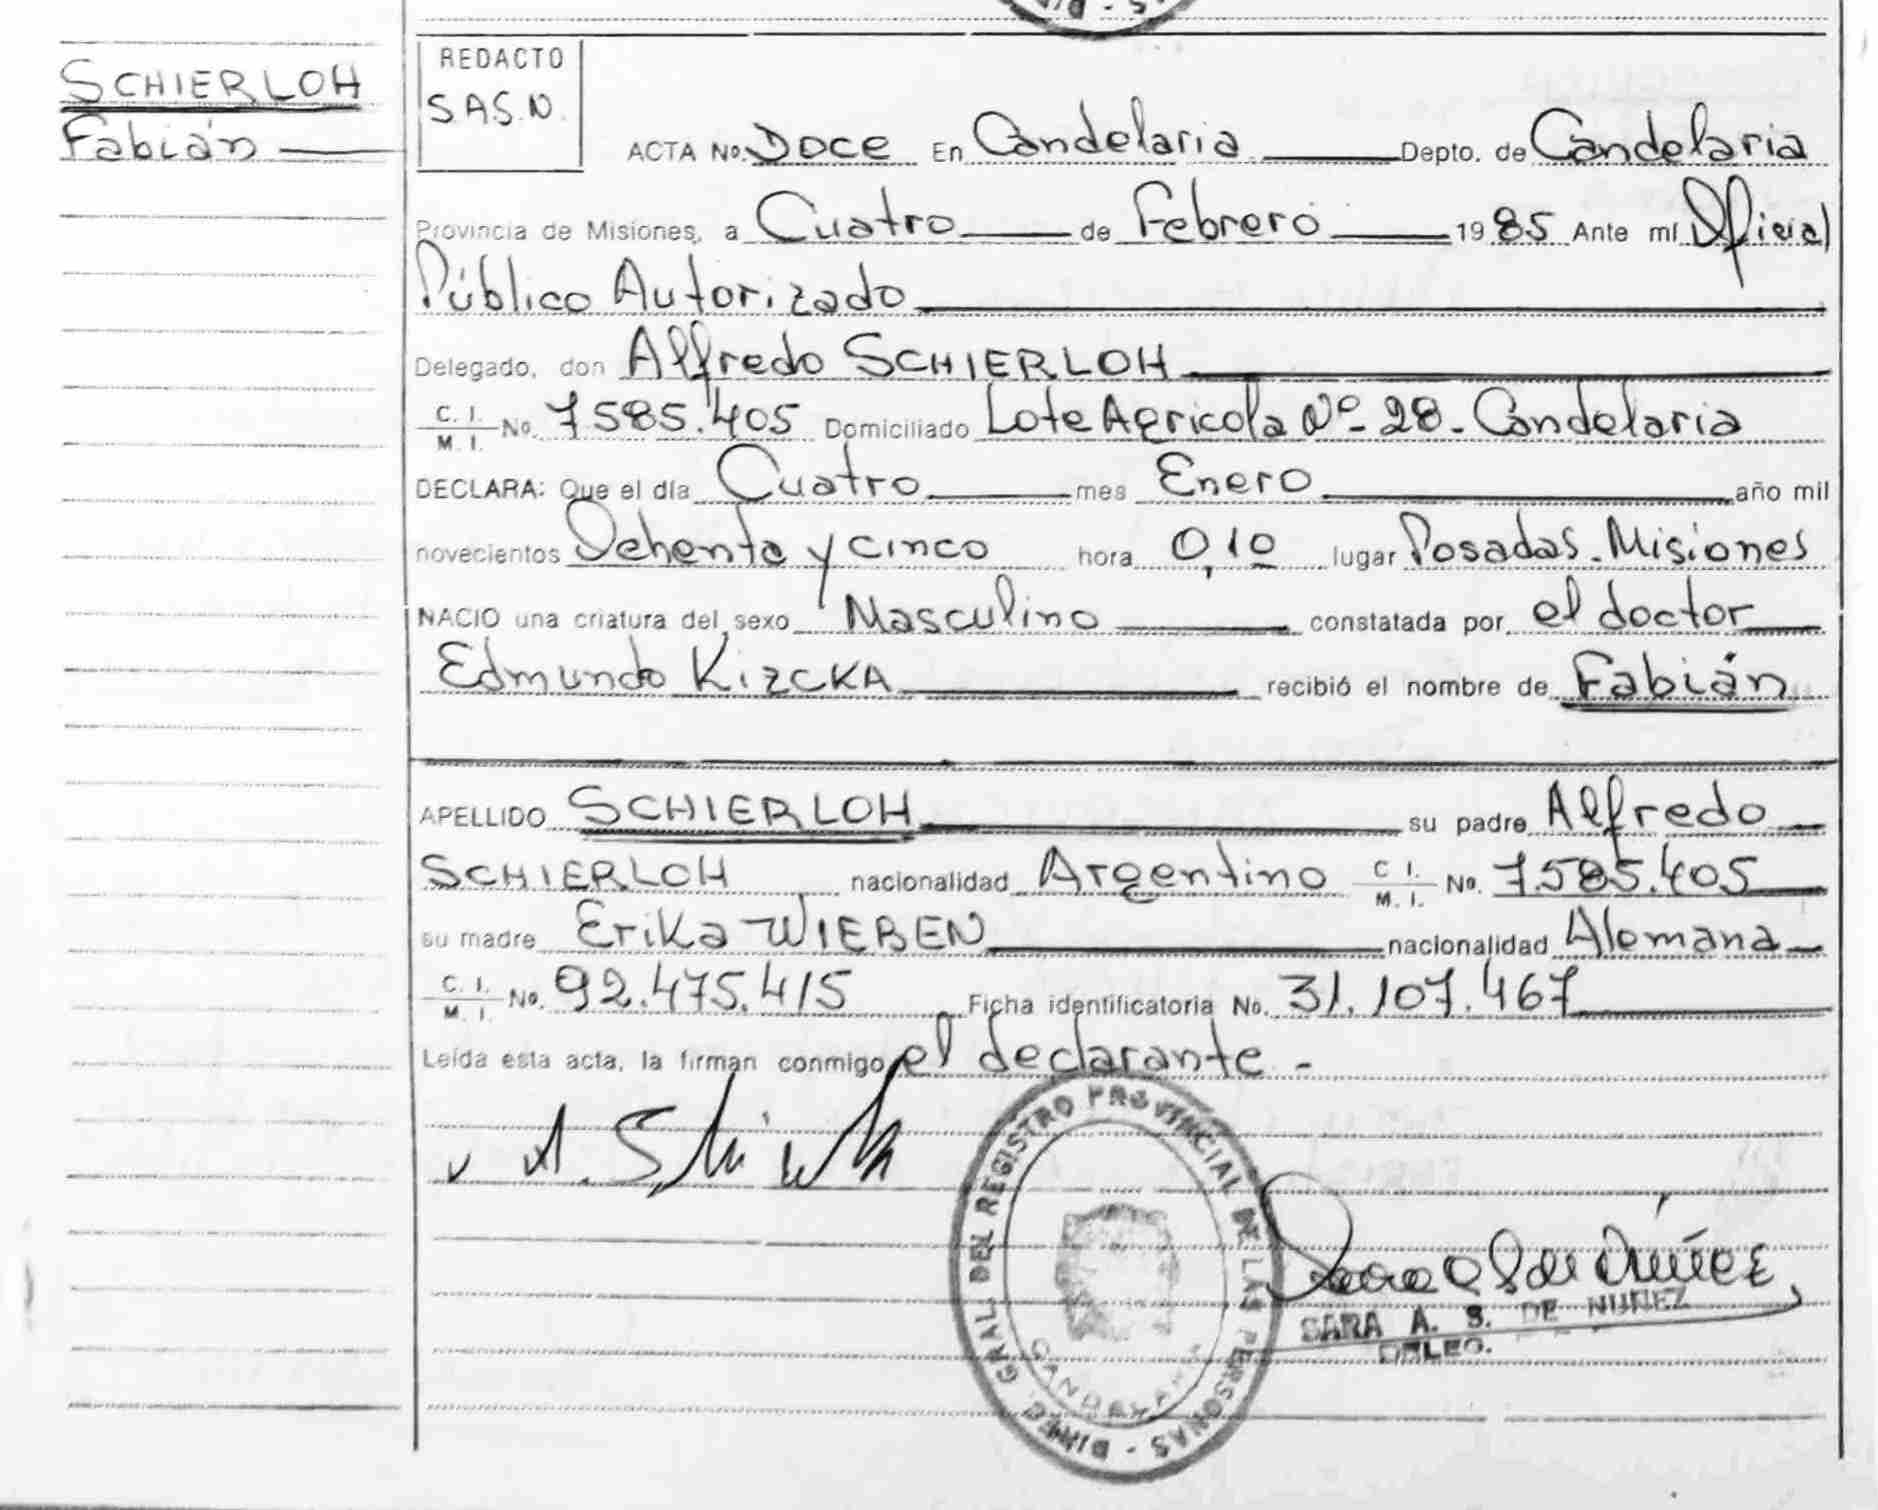 SCHIERLOH
Fabián
REDACTO
S.A.S.N.
ACTA No. Doce En Candelaria Depto. de Candelaria
Provincia de Misiones, a Cuatro de Febrero 1985 Ante mí Oficial
Público Autorizado
Delegado, don Alfredo SCHIERLOH
C. I. / M. I. No. 7585.405 Domiciliado Lote Agricola Nº 28. Candelaria
DECLARA: Que el día Cuatro mes Enero año mil
novecientos Ochenta y cinco hora 0,10 lugar Posadas. Misiones
NACIO una criatura del sexo Masculino constatada por el doctor
Edmundo KIZCKA recibió el nombre de Fabián
APELLIDO SCHIERLOH su padre Alfredo
SCHIERLOH nacionalidad Argentino C. I. / M. I. No. 7.585.405
su madre Erika WIEBEN nacionalidad Alemana
C. I. / M. I. No. 92.475.415 Ficha identificatoria No. 31.107.467
Leída esta acta, la firman conmigo el declarante.-
DIREC. GRAL. DEL REGISTRO PROVINCIAL DE LAS PERSONAS
SARA A. S. DE NUÑEZ
DELEG.